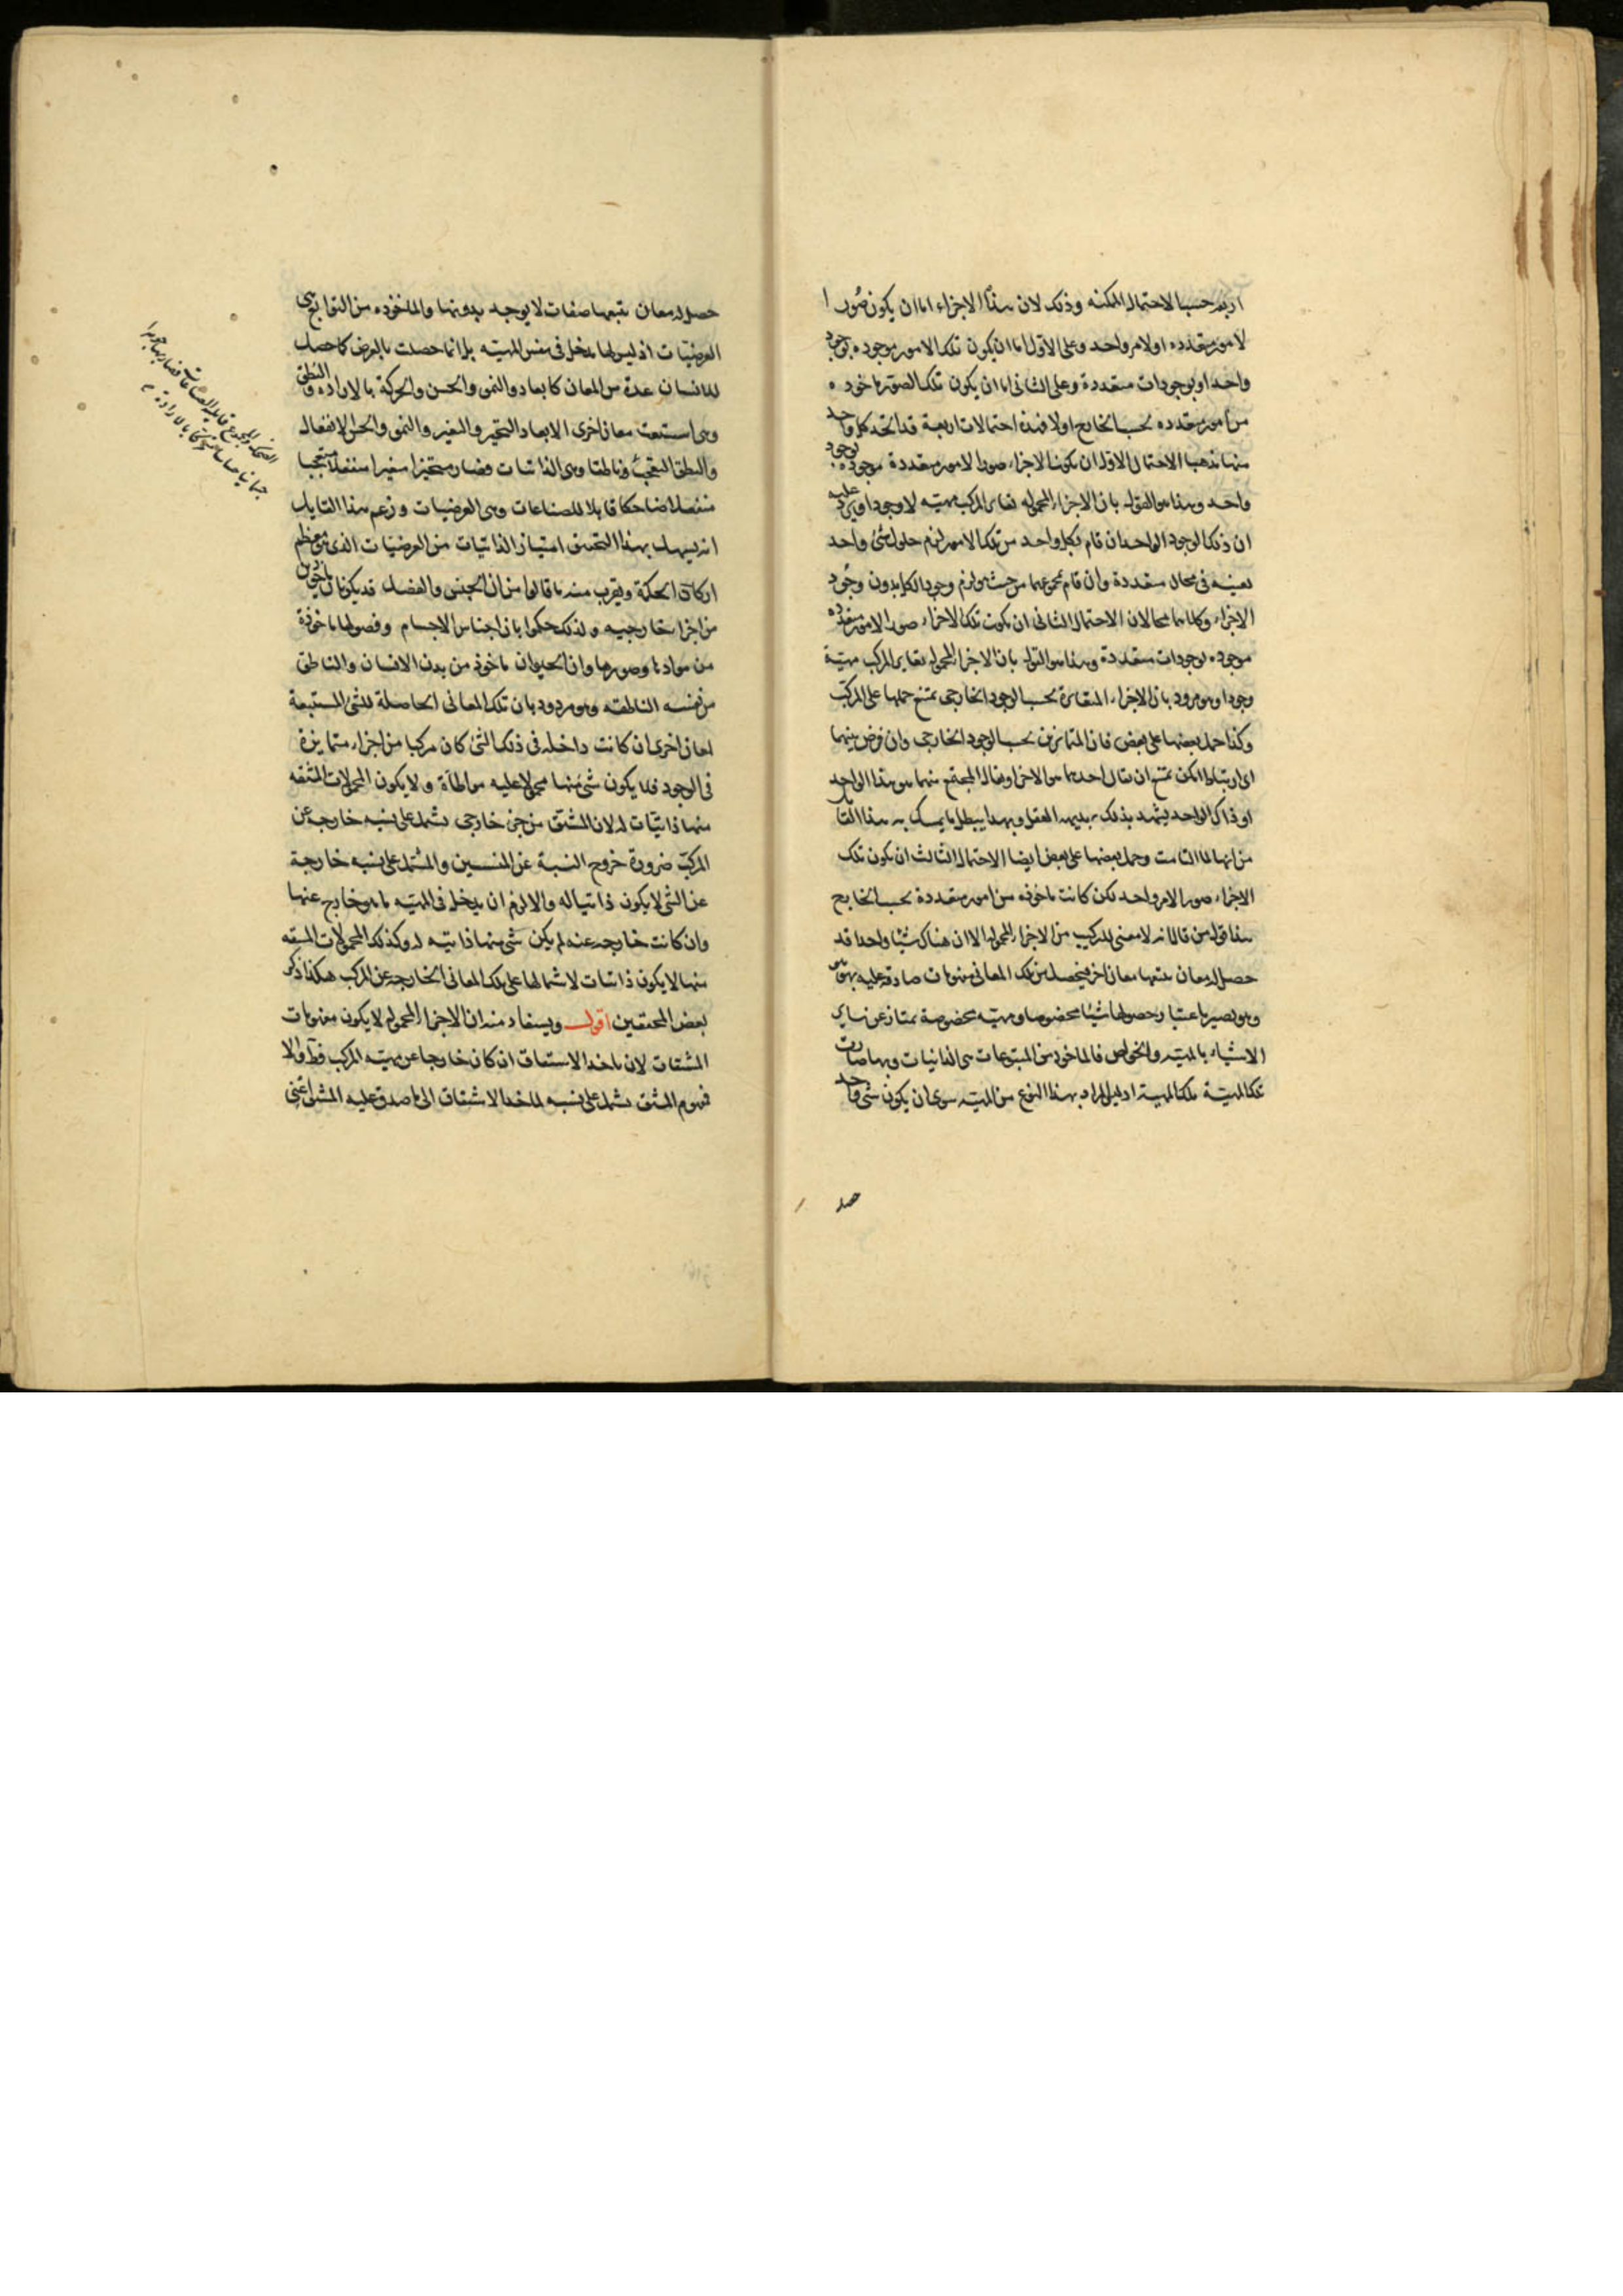 اربعه حسب الاحتمالات الممكنه وذلك لان هذه الاجزاء اما ان يكون صورا
لامور متعدده او لامر واحد وعلى الاول اما ان يكون تلك الامور موجوده بوجود
واحد او بوجودات متعددة وعلى الثانى اما ان يكون تلك الصور ماخوده
من امور متعدده بحسب الخارج اولا فهذه احتمالات اربعة قد اتخذ كل واحد
منها مذهبا الاحتمال الاول ان يكون الاجزاء صورا لامور متعددة موجوده بوجود
واحد وهذا هو القول بان الاجزاء المحموله تغاير المركب مهيته لا وجودا ويرد عليه
ان ذلك الوجود الواحد ان قام بكل واحد من تلك الامور لزم حلول شئ واحد
بعينه فى محال متعددة وان قام بمجموعها من حيث هو لزم وجود الكل بدون وجود
الاجزاء وكلاهما محالان الاحتمال الثانى ان يكون تلك الاجزاء صورا لامور متعدده
موجوده بوجودات متعددة وهذا هو القول بان الاجزاء المحموله تغاير المركب مهيّة
وجودا وهو مردود بان الاجزاء المتغايرة بحسب الوجود الخارجى يمتنع حملها على المركب
وكذا حمل بعضها على بعض فان المتمايزين بحسب الوجود الخارجى وان فرض بينهما
اى ارتباط امكن يمتنع ان يقال احدهما هو الاخر او يقال المجتمع منهما هو هذا الواحد
او ذاك الواحد يشهد بذلك بديهه العقل وبهذا يبطل ما يتمسك به هذا القا
من انها لما التامت وحمل بعضها على بعض ايضا الاحتمال الثالث ان يكون تلك
الاجزاء صورا لامر واحد لكن كانت ماخوذه من امور متعددة بحسب الخارج
هذا قول من قال انه لا معنى للتركيب من الاجزاء المحموله الا ان هناك شيئا واحدا قد
حصل له معان يتبعها معان اخر فيحصل من تلك المعانى مفهومات صادقه عليه
وهو يصير باعتبار حصولها شيئا مخصوصا ومهيته مخصوصة يمتاز عن ساير
الاشياء بالمهيته والخواص فالماخوذ من المتبوعات هى الذاتيات وبها صارت
تلك المهيّة تلك المهية اذ ليس المراد بهذا النوع من المهيّه سوى ان يكون شئ واحد
حصل
حصل له معان يتبعها صفات لا يوجد بدونها والماخوذه من التوابع هى
العرضيّات اذ ليس لها مدخل فى نفس المهيّه بل انما حصلت بالعرض كما حصل
للانسان عدة من المعان كابعاد والنمو والحس والحركة بالاراده والنطق
وهى استتبعت معان اخرى الابعاد التحيز والتغير والنمو والحس الانفعال
والنطق التعجب وناطقا وهى الذاتيات فصار متحيزا متغيرا منفعلا متعجبا
منفعلا ضاحكا قابلا للصناعات وهى العرضيات وزعم هذا القايل
انه يسهل بهذا التحقيق امتياز الذاتيات من العرضيّات الذى هو معظم
اركان الحكمة ويقرب منه ما قالوا من ان الجنس والفصل قد يكونان ماخوذين
من اجزاء خارجيه ولذلك حكموا بان اجناس الاجسام وفصولها ماخوذة
من موادها وصورها وان الحيوان ماخوذ من بدن الانسان والناطق
من نفسه الناطقه وهو مردود بان تلك المعانى الحاصلة للشئ المستتبعة
لمعان اخرى ان كانت داخله فى ذلك الشئ كان مركبا من اجزاء متمايزة
فى الوجود فلا يكون شئ منها محمولا عليه مواطاة ولا يكون المحمولات المشتقه
منها ذاتيّات له لان المشتق من جزء خارجى يشتمل على نسبه خارجه عن
المركّب ضرورة خروج النسبة عن المنتسبين والمشتمل على نسبه خارجة
عن الشئ لا يكون ذاتيا له والا لزم ان يدخل فى المهيّه ما هو خارج عنها
وان كانت خارجه عنه لم يكن شئ منها ذاتيّه له وكذلك المحمولات المشتقه
منها لا يكون ذاتيات لاشتمالها على تلك المعانى الخارجه عن المركب هكذا ذكر
بعض المحققين اقول ويستفاد منه ان الاجزاء المحموله لا يكون مفهومات
المشتقات لان ماخذ الاشتقاق ان كان خارجا عن مهيّه المركب فظ والا
فمفهوم المشتق يشتمل على نسبه لماخذ الاشتقاق الى ما صدق عليه المشتق اعنى